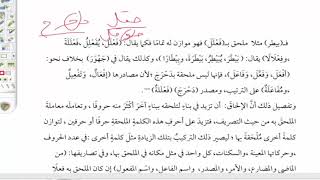 فـ(بيطر) مثلا ملحق بـ(فعلل) فهو موازن له تماما فكما يقال: (فَعْلَلَ، يُفَعْلِلُ، فَعْلَلَةً
وفِعْلَالًا) يقال: (بَيْطَرَ، يُبَيْطِرُ، بَيْطَرَةً، وبِيْطَارًا)، وكذلك يقال في (جَهْوَرَ) بخلاف
(أَفْعَلَ، وَفَعَّلَ، وَفَاعَلَ)، فإنها ليس ملحقة بدَحْرَجَ؛ لأن مصادرها (إِفْعَال، وَتَفْعِيل
وَمُفَاعَلَة) على الترتيب، ومصدر (دَحْرَجَ) (فَعْلَلَة)
وتفصيل ذلك أنّ الإلحاق: أن تزيد في بناءٍ لتلحقه ببناءٍ آخرَ أكثرَ منه حروفًا، وتعامله معاملة
الملحق به من حيث التصريف، فتزيدَ على أحرف هذه الكلمةِ الملحقةِ حرفًا أو حرفين، لتوازن
كلمة أخرى مُلْحَقة بها؛ ليصير ذلك التركيبُ بتلك الزيادةِ مثلَ كلمة أخرى : في عدد الحروف
وحركاتها المعينة، والسكنات، كل واحد في مثل مكانه في الملحق بها، وفي تصاريفها: (من
الماضي، والمضارع، والأمر، والمصدر، واسم الفاعل، واسم المفعول) إن كان الملحق به فعلًا